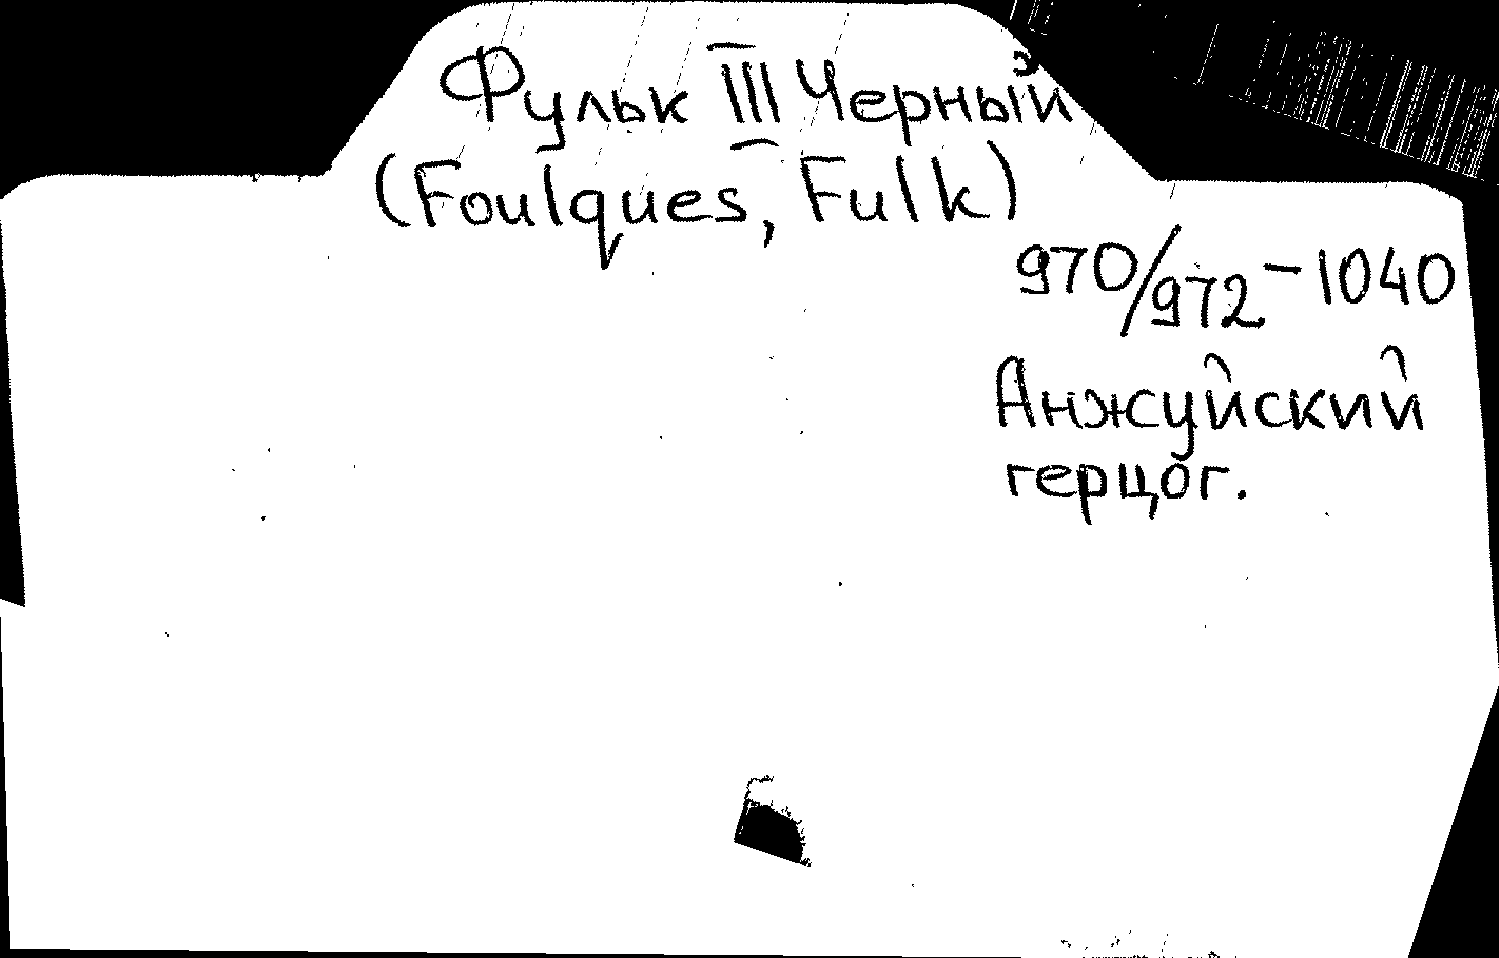 Фульк III Черный
(Foulques, Fulk)
970/972 - 1040
Анжуйский
герцог.